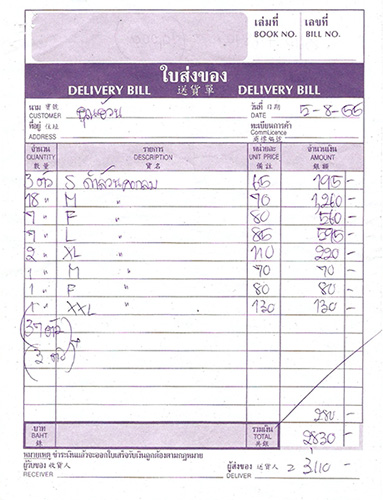 เล่มที่ เลขที่
BOOK NO. BILL NO.
ใบส่งของ
DELIVERY BILL 送貨單 DELIVERY BILL
นาม 寶號 วันที่ 日期
CUSTOMER DATE 5-8-55
ที่อยู่ 住址 ทะเบียนการค้า
ADDRESS Comm.Licence
จำนวน รายการ หน่วยละ จำนวนเงิน
QUANTITY DESCRIPTION UNIT PRICE AMOUNT
數量 貨名 備註 銀額
3 ตัว S 65 195 -
18 " M " 70 1,260 -
7 " F " 80 560 -
7 " L " 85 595 -
2 " XL " 110 220 -
1 " M " 70 70 -
1 " F " 80 80 -
1 " XXL " 130 130 -
37 ตัว
3 ตัว
280 -
บาท รวมเงิน
BAHT TOTAL 2830 -
錢 共銀
หมายเหตุ ชำระเงินแล้วจะออกใบเสร็จรับเงินถูกต้องตามกฎหมาย
ผู้รับของ 收貨人 ผู้ส่งของ 送貨人 3,110 -
RECEIVER DELIVER